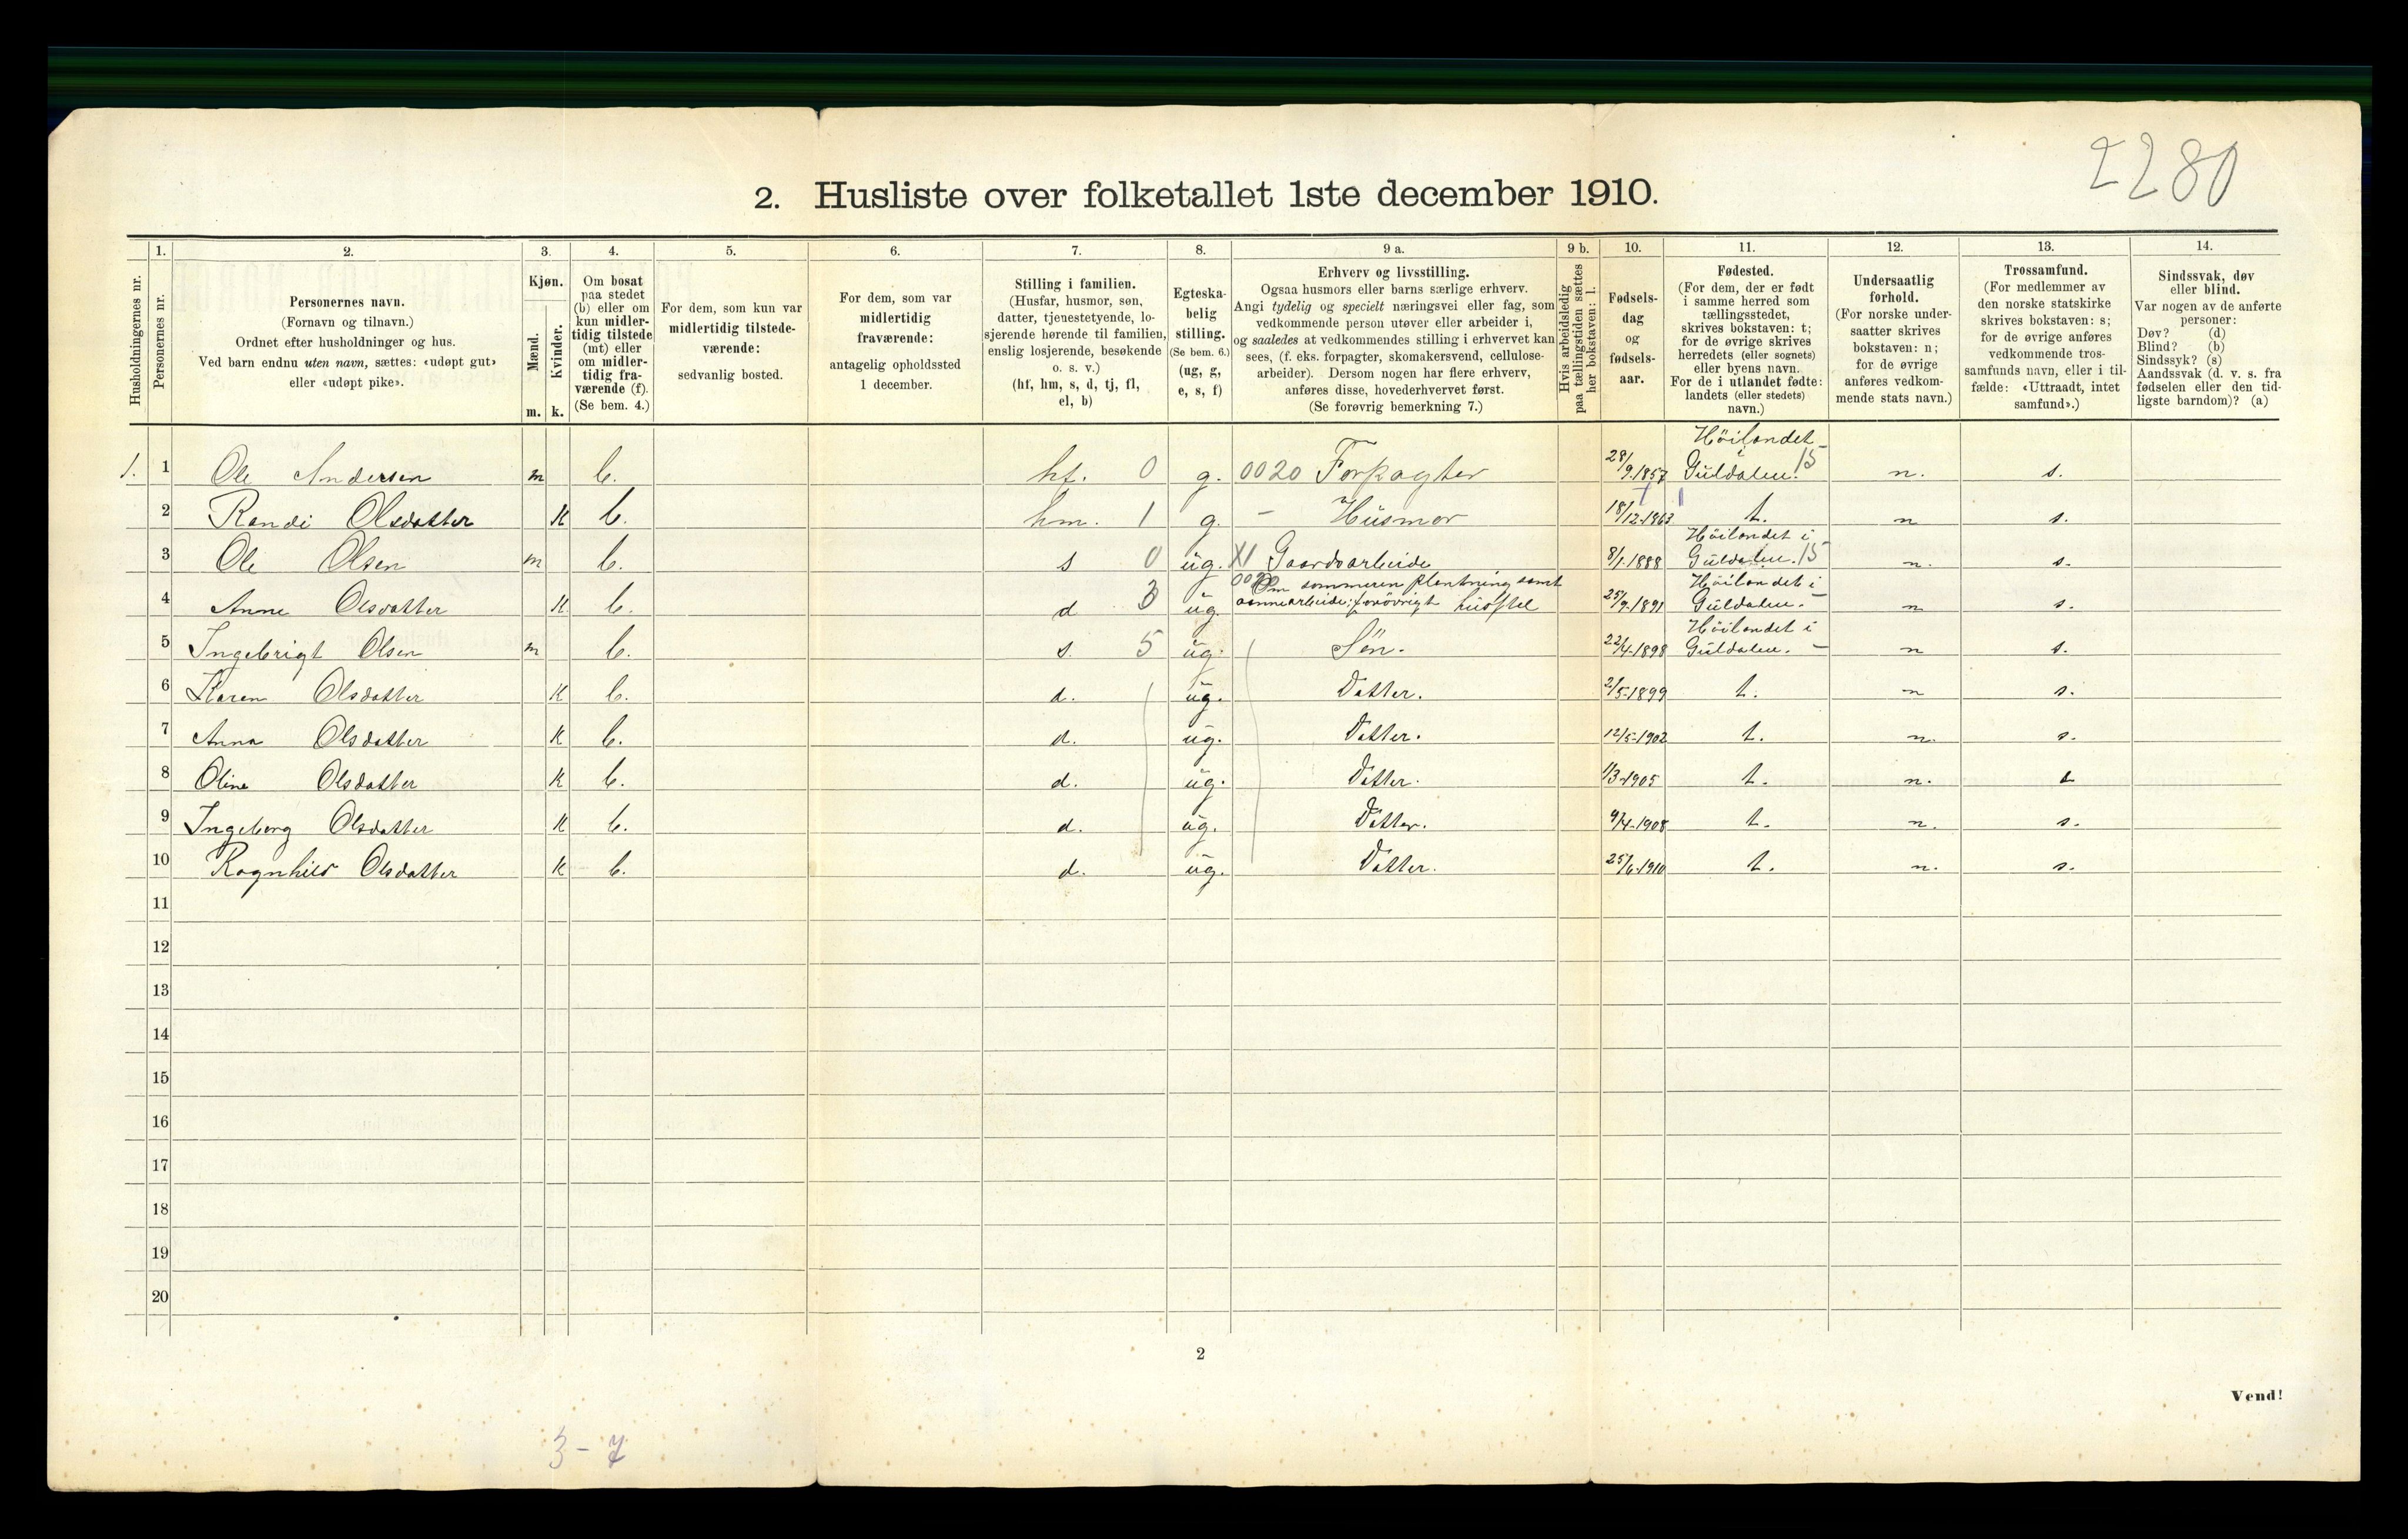 2280
2. Husliste over folketallet 1ste december 1910.
Husholdningernes nr.
1.
Personernes nr.
2.
Personernes navn.
(Fornavn og tilnavn.)
Ordnet efter husholdninger og hus.
Ved barn endnu uten navn, sættes: «udøpt gut»
eller «udøpt pike».
3.
Kjøn.
Mænd.
Kvinder.
m. k.
4.
Om bosat
paa stedet
(b) eller om
kun midler-
tidig tilstede
(mt) eller
om midler-
tidig fra-
værende (f).
(Se bem. 4.)
5.
For dem, som kun var
midlertidig tilstede-
værende:
sedvanlig bosted.
6.
For dem, som var
midlertidig
fraværende:
antagelig opholdssted
1 december.
7.
Stilling i familien.
(Husfar, husmor, søn,
datter, tjenestetyende, lo-
sjerende hørende til familien,
enslig losjerende, besøkende
o. s. v.)
(hf, hm, s, d, tj, fl,
el, b)
8.
Egteska-
belig
stilling.
(Se bem. 6.)
(ug, g,
e, s, f)
9 a.
Erhverv og livsstilling.
Ogsaa husmors eller barns særlige erhverv.
Angi tydelig og specielt næringsvei eller fag, som
vedkommende person utøver eller arbeider i,
og saaledes at vedkommendes stilling i erhvervet kan
sees, (f. eks. forpagter, skomakersvend, cellulose-
arbeider). Dersom nogen har flere erhverv,
anføres disse, hovederhvervet først.
(Se forøvrig bemerkning 7.)
9 b.
Hvis arbeidsledig
paa tællingstiden sættes
her bokstaven: l.
10.
Fødsels-
dag
og
fødsels-
aar.
11.
Fødested.
(For dem, der er født
i samme herred som
tællingsstedet,
skrives bokstaven: t;
for de øvrige skrives
herredets (eller sognets)
eller byens navn.
For de i utlandet fødte:
landets (eller stedets)
navn.)
12.
Undersaatlig
forhold.
(For norske under-
saatter skrives
bokstaven: n;
for de øvrige
anføres vedkom-
mende stats navn.)
13.
Trossamfund.
(For medlemmer av
den norske statskirke
skrives bokstaven: s;
for de øvrige anføres
vedkommende tros-
samfunds navn, eller i til-
fælde: «Uttraadt, intet
samfund».)
14.
Sindssvak, døv
eller blind.
Var nogen av de anførte
personer:
Døv? (d)
Blind? (b)
Sindssyk? (s)
Aandssvak (d. v. s. fra
fødselen eller den tid-
ligste barndom)? (a)
1. 1 Ole Andersen m b. hf. 0 g. 0020 Forpagter 28/9.1857 Höilandet i Guldalen. 15 n. s.
2 Randi Olsdatter k b. hm. 1 g. – Husmor 18/12-1863 t. n s.
3 Ole Olsen m b. s 0 ug. XI Gaardsarbeide 8/1-1888 Höilandet i Guldalen. 15 n. s.
4 Anne Olsdatter k b. d 3 ug. Om sommeren plantning samt
forøvrigt husstel 25/9-1891 Höilandet i Guldalen. – n s.
5 Ingebrigt Olsen m b. s. 5 ug. Sön. 22/4-1898 Höilandet i Guldalen. – n s.
6 Karen Olsdatter k b. d. ug. Datter. 2/5-1899 t. n s.
7 Anna Olsdatter k b. d. ug. Datter. 12/5-1902 t. n. s.
8 Oline Olsdatter k b. d. ug. Datter. 1/3-1905 t. n. s
9 Ingeborg Olsdatter k b. d. ug. Datter. 9/4-1908 t. n. s.
10 Ragnhild Olsdatter k b. d. ug. Datter. 25/6-1910 t. n. s.
11
12
13
14
15
16
17
18
19
20
2
Vend!
3-7